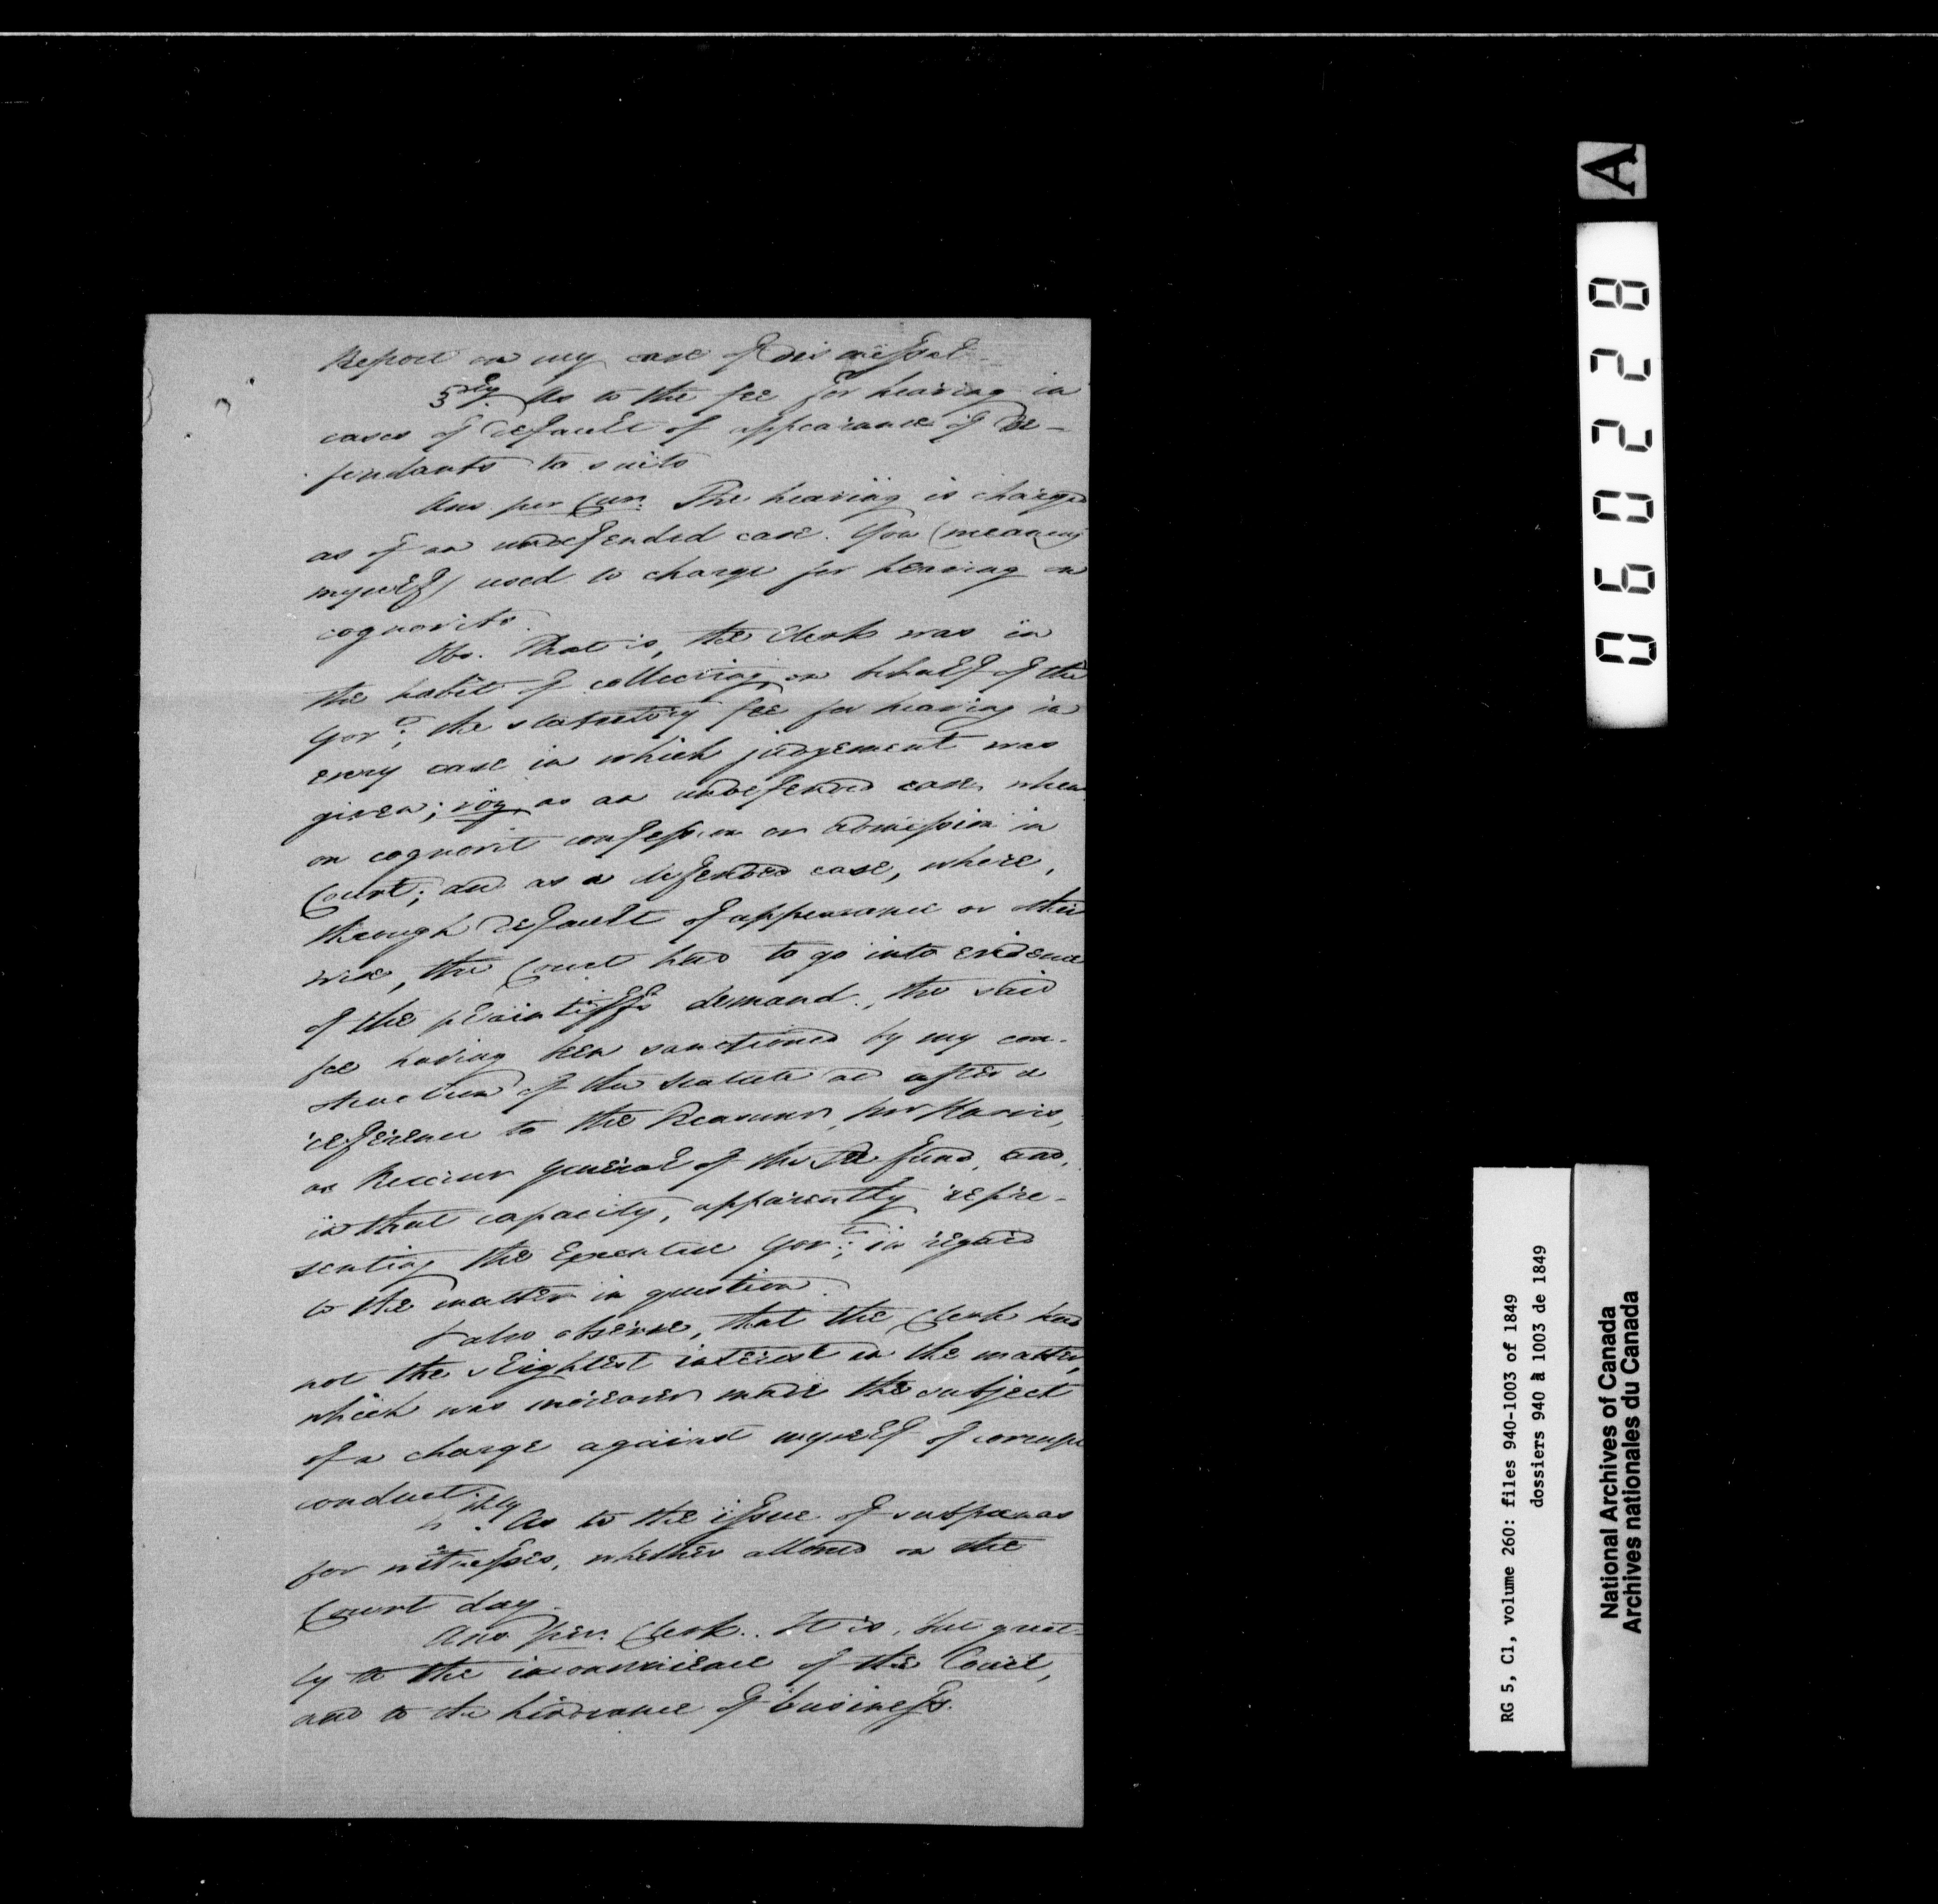 Report on my case of dismissal
3rdly. As to the fee for hearing in
cases of default of appearance of De-
fendants to suits
Ans per Cur. The hearing is charged
as of an undefended case. You (meaning
myself) used to charge for hearing on
cognovits.
Obs. That is, the Clerk was in
the habit of collecting on behalf of the
Govt., the statutory fee for hearing in
every case in which judgement was
given; viz, as an undefended case, when
on cognovit confession or admission in
Court; and as a defended case, where,
through default of appearance or other
wise, the Court had to go into evidence
of the plaintiffs demand., the said
fee having been sanctioned by my con-
struction of the statute and after a
reference to the Treasurer, Mr Harris,
as Receiver general of the Fee fund, and,
in that capacity, apparently repre-
senting the Executive Govt.; in regard
to the matter in question.
I also observe, that the Clerk had
not the slightest interest in the matter,
which was moreover made the subject
of a charge against myself of corrupt
conduct.
4thly. As to the issue of subpœnas
for witnesses, whether allowed on the
Court day.
Ans. per. Clerk. It is, but great-
ly to the inconvenience of the Court,
and to the hindrance of business.
A
060228
RG 5, C1, volume 260: files 940-1003 of 1849
dossiers 940 à 1003 de 1849
National Archives of Canada
Archives nationales du Canada